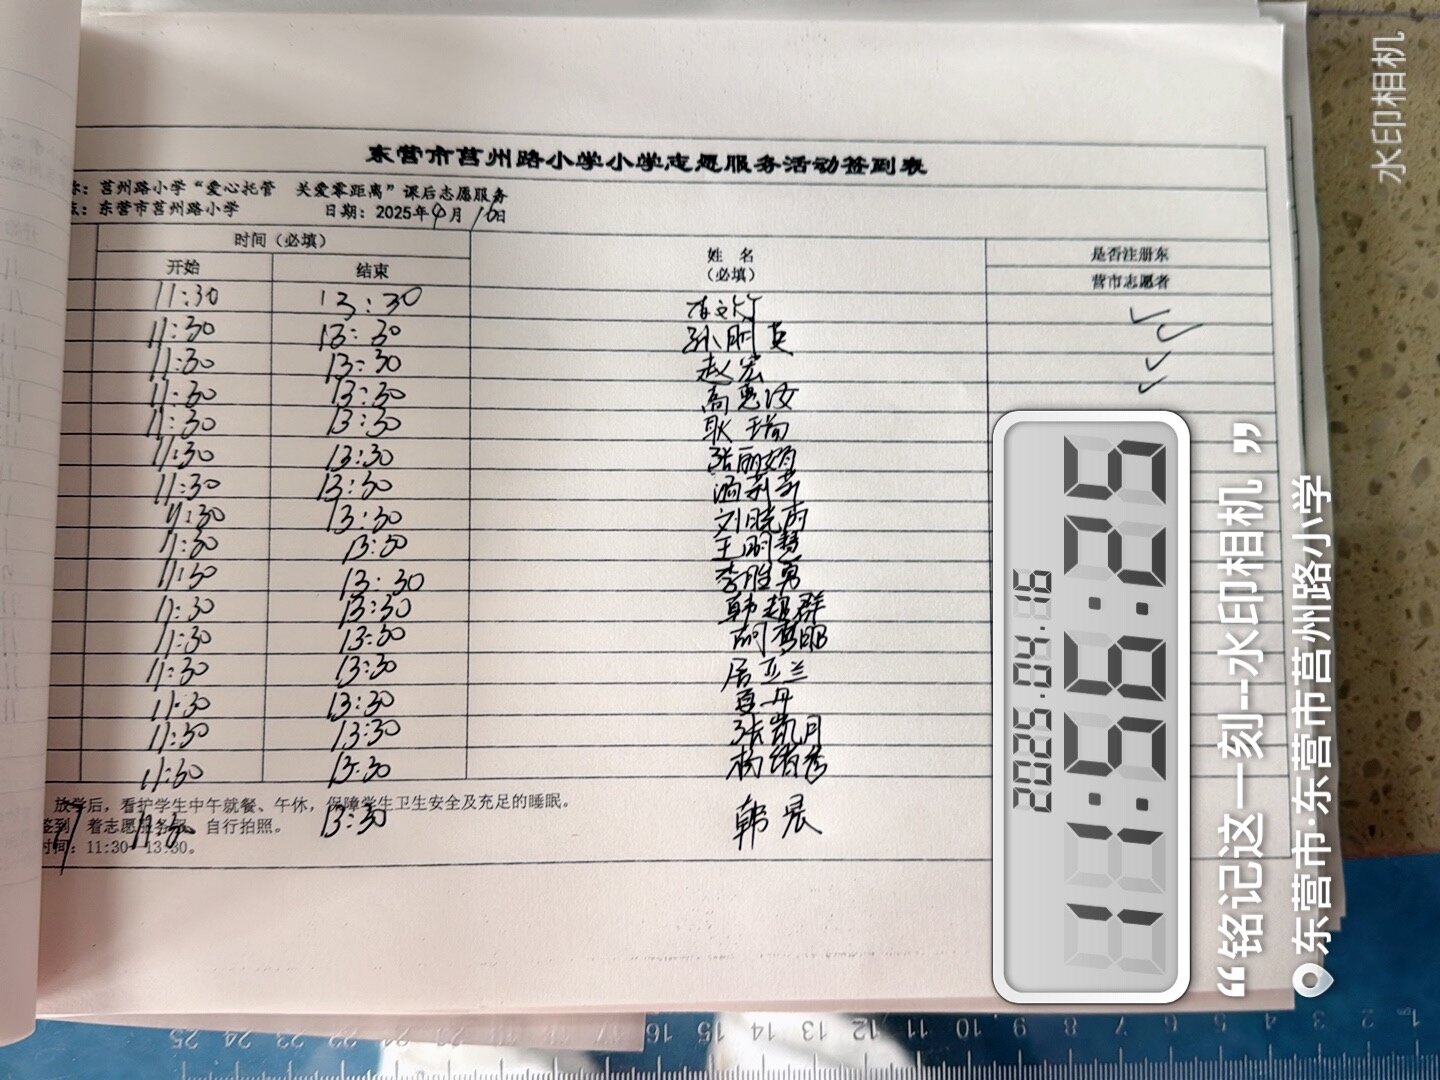 东营市莒州路小学小学志愿服务活动签到表
称：莒州路小学“爱心托管 关爱零距离”课后志愿服务
点：东营市莒州路小学 日期：2025年4月16日
时间（必填） 姓 名（必填） 是否注册东营市志愿者
开始 结束
11:30 13:30 ✓
11:30 13:30 孙丽英 ✓
11:30 13:30 赵宏 ✓
11:30 13:30 高惠汝 ✓
11:30 13:30 耿瑞
11:30 13:30 张丽娟
11:30 13:30
11:30 13:30 刘晓雨
11:30 13:30 王丽慧
11:30 13:30 李胜男
11:30 13:30 韩超群
11:30 13:30
11:30 13:30 居亚兰
11:30 13:30 夏丹
11:30 13:30 张凯月
11:30 13:30 杨绪秀
放学后，看护学生中午就餐、午休，保障学生卫生安全及充足的睡眠。
签到 着志愿服务 自行拍照。
17 11:30 13:30 韩晨
时间：11:30—13:30。
水印相机
52:55:11
2025.04.16
“铭记这一刻--水印相机”
东营市·东营市莒州路小学
25 24 23 22 21 20 19 18 17 16 15 14 13 12 11 10 9 8 7 6 5 4 3 2 1